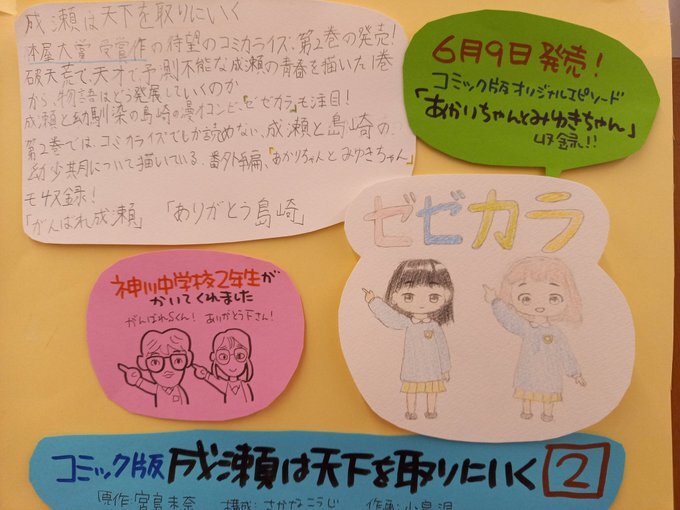 成瀬は天下を取りにいく
本屋大賞受賞作の待望のコミカライズ、第2巻の発売!
破天荒で、天才で予測不能な成瀬の青春を描いた1巻
から、物語はどう発展していくのか
成瀬と幼馴染の島崎の漫才コンビ、「ゼゼカラ」も注目!
第2巻では、コミカライズでしか読めない、成瀬と島崎の
幼少期について描いている、番外編、「あかりちゃんとみゆきちゃん」
も収録!
「がんばれ成瀬」 「ありがとう島崎」
6月9日発売!
コミック版オリジナルエピソード
「あかりちゃんとみゆきちゃん」
収録!!
ゼゼカラ
神川中学校2年生が
かいてくれました
がんばれるくん! ありがとう下さん!
コミック版 成瀬は天下を取りにいく 2
原作:宮島未奈 構成:さかなこうじ 作画:小畠泪